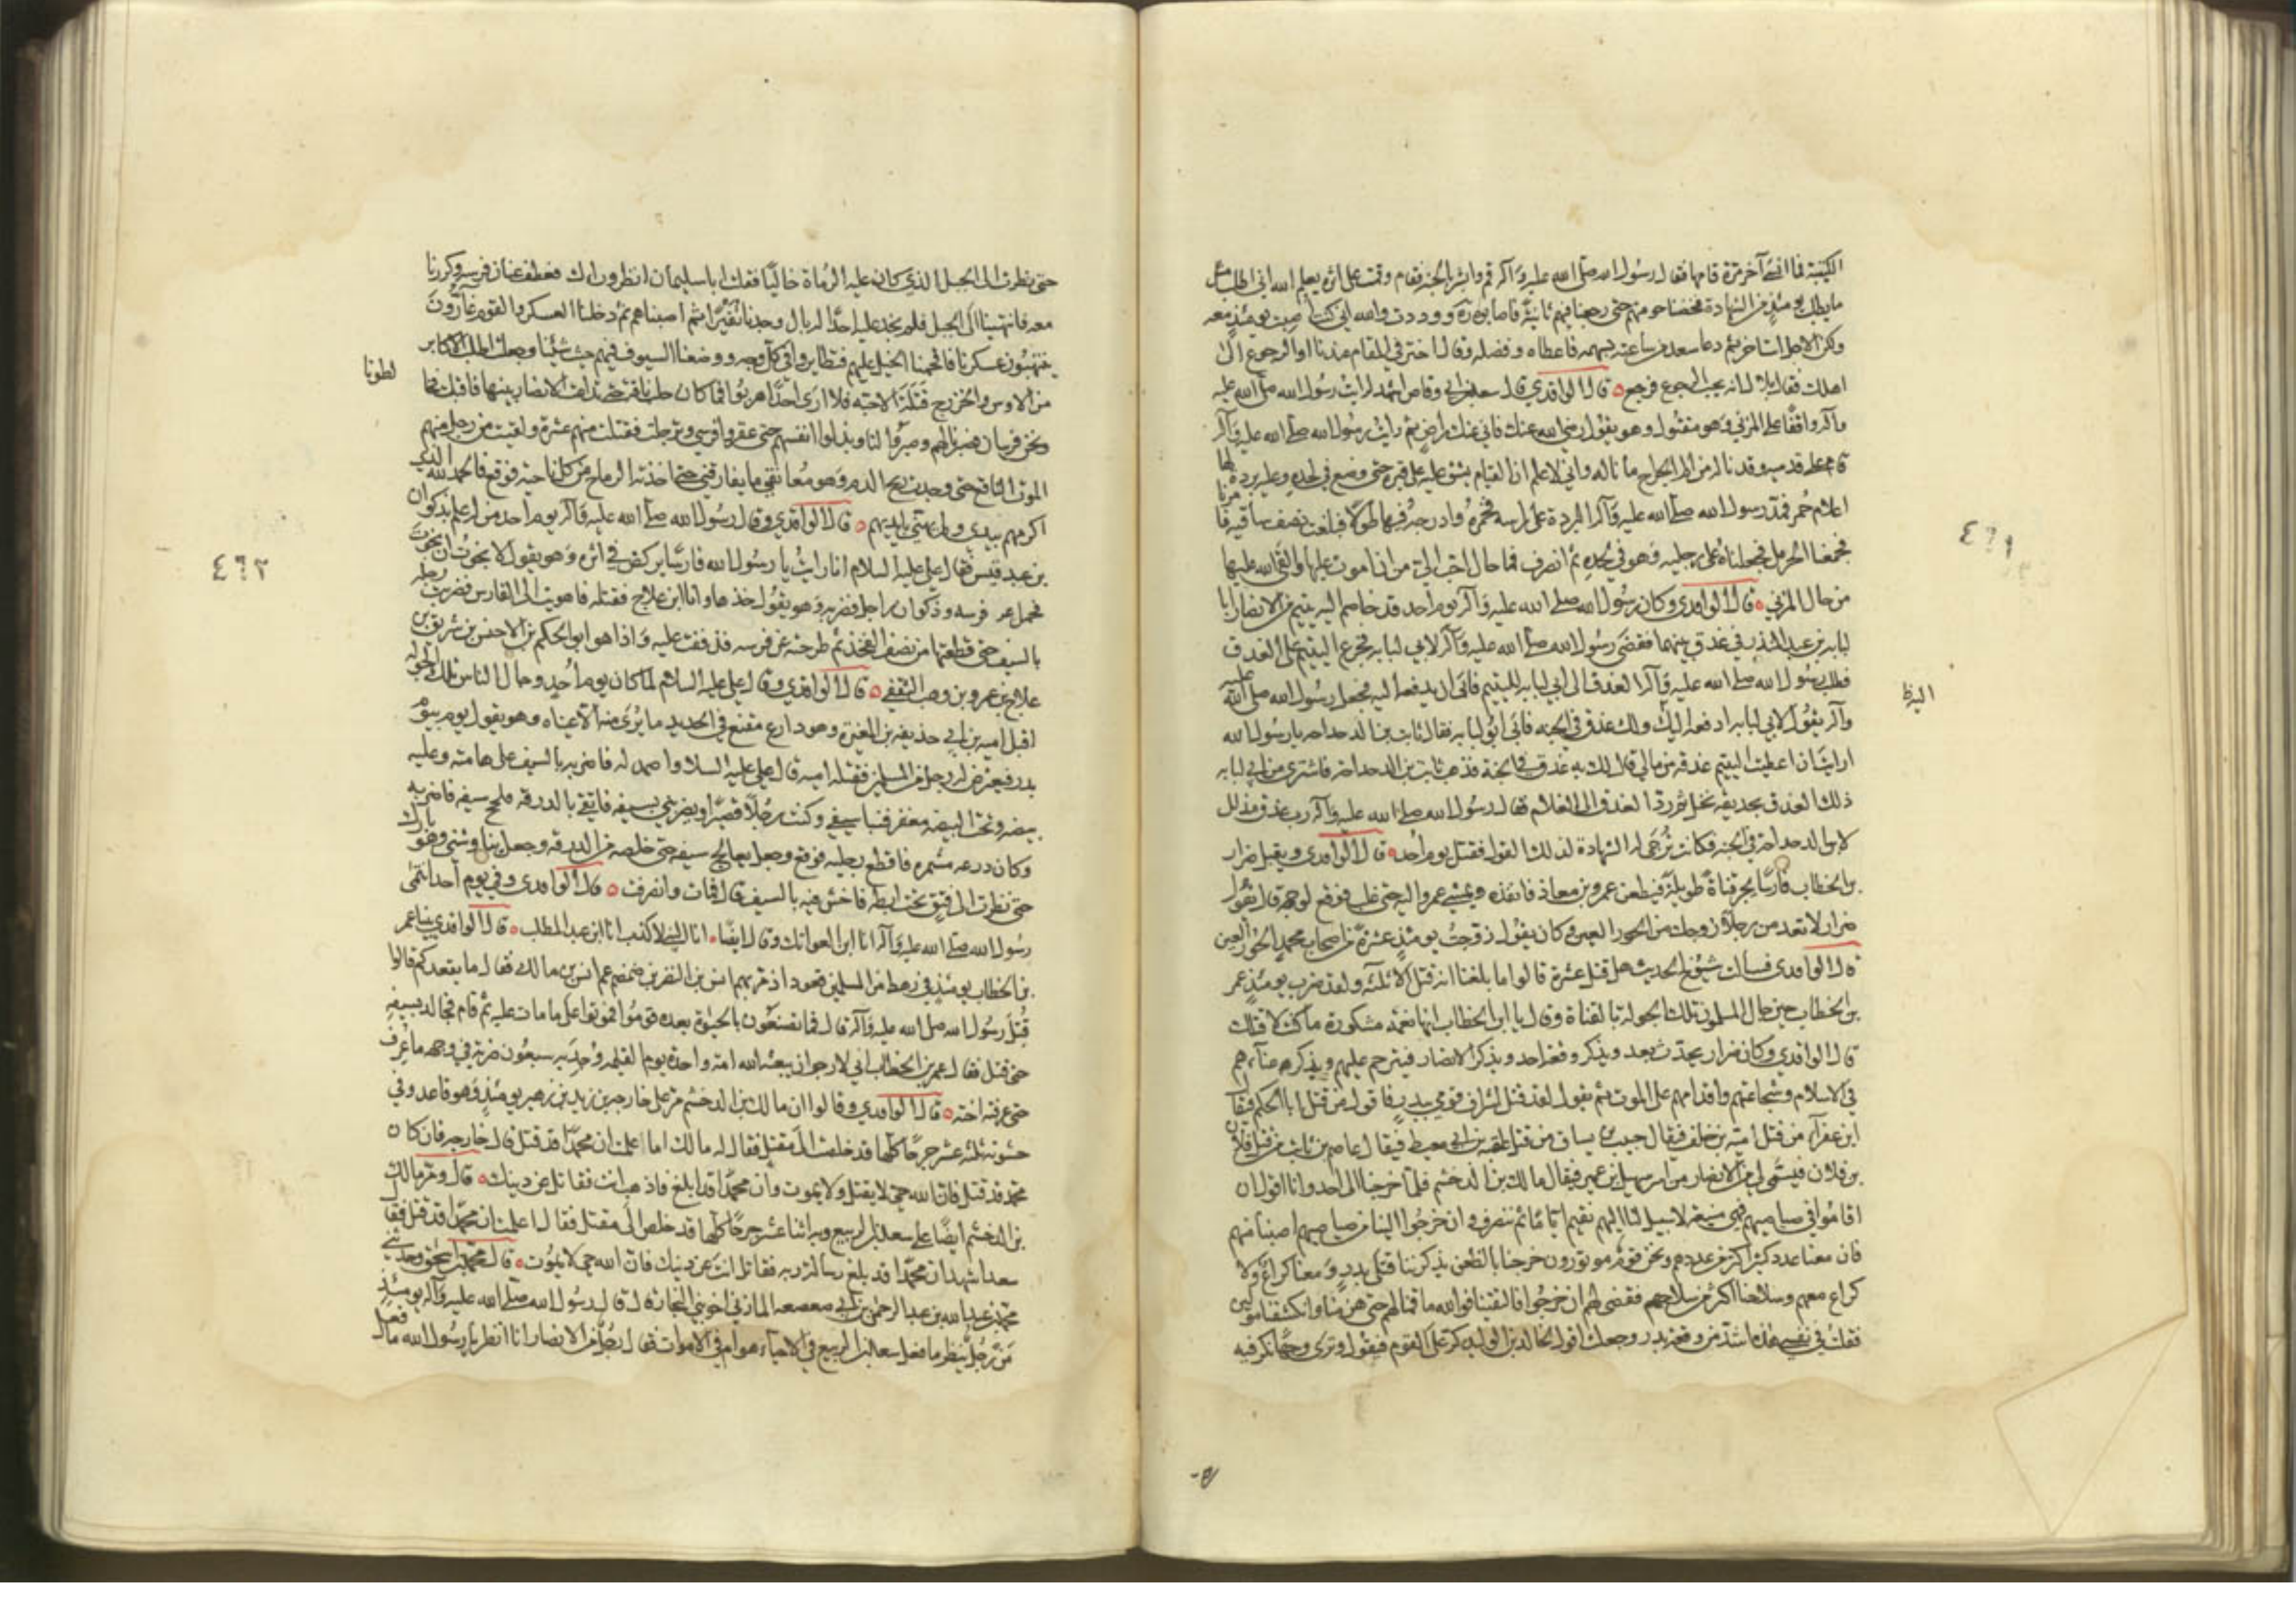 الكتيبة فما انسى آخر مرة قامها فقال رسول الله صلى الله عليه وآله قم وابشر بالجنة فقام وقمت على اثره يعلم الله اني اطلب مثل
ما يطلب يومئذ من الشهادة فخضنا حومتهم حتى رجعنا فيهم ثانية فاصابوه ووددت والله اني كنت اصبت يومئذ معه
ولكن اجلي استاخر ثم دعا سعد من ساعته بسهمه فاعطاه وفضله وقال اختر في المقام عندنا او الرجوع الى
اهلك فقال بلال انه يحب الرجوع فرجع قال الواقدي قال سعد بن ابي وقاص اشهد لرايت رسول الله صلى الله عليه
وآله واقفا على المزني وهو مقتول وهو يقول رضي الله عنك فاني عنك راض ثم رايت رسول الله صلى الله عليه وآله
قام على قدميه وقد ناله من الم الجراح ما ناله واني لاعلم ان القيام يشق عليه على قبره حتى وضع في لحده وعليه بردة لها
اعلام حمر فمد رسول الله صلى الله عليه وآله البردة على راسه فخمره وادرجه فيها طولا فبلغت نصف ساقيه فامرنا
فجمعنا الحرمل فجعلناه على رجليه وهو في لحده ثم انصرف فما حال احب الي من ان اموت عليها والقى الله عليها
من حال المزني قال الواقدي وكان رسول الله صلى الله عليه وآله يوم احد قد خاصم اليه يتيم من الانصار ابا
لبابه بن عبد المنذر في عذق بينهما فقضى رسول الله صلى الله عليه وآله لابي لبابه فجزع اليتيم على العذق
فطلب رسول الله صلى الله عليه وآله العذق الى ابي لبابه لليتيم فابى ان يدفعه اليه فجعل رسول الله صلى الله عليه
وآله يقول لابي لبابه ادفعه اليه ولك عذق في الجنه فابى ابو لبابه فقال ثابت بن الدحداحه يا رسول الله
ارايت ان اعطيت اليتيم عذقه من مالي قال لك به عذق في الجنة فذهب ثابت بن الدحداحة فاشترى من ابي لبابه
ذلك العذق بحديقه نخل ثم رد العذق الى الغلام فقال رسول الله صلى الله عليه وآله رب عذق مذلل
لابن الدحداحة في الجنه فكانت ترجى له الشهادة لذلك القول فقتل يوم احد قال الواقدي ويقبل ضرار
بن الخطاب فارسا يجر قناة طويلة فيطعن عمرو بن معاذ فانفذه ويمشي عمرو اليه حتى غلب فوقع لوجهه قال يقول
ضرار لا تعدمن رجلا زوجك من الحور العين وكان يقول زوجت يومئذ عشرة من اصحاب محمد الحور العين
قال الواقدي فسالت شيوخ الحديث هل قتل عشرة قالوا ما بلغنا انه قتل الا ثلثه ولقد ضرب يومئذ عمر
بن الخطاب حين جال المسلمون تلك الجوله بالقناة وقال يا ابن الخطاب انها نعمه مشكورة ما كنت لاقتلك
قال الواقدي وكان ضرار يحدث بعد ويذكر وقعة احد ويذكر الانصار فيترحم عليهم ويذكر غناءهم
في الاسلام وشجاعتهم واقدامهم على الموت ثم يقول لقد قتل اشراف قومي ببدر فاقول من قتل ابا الحكم فيقال
ابن عفراء من قتل امية بن خلف فيقال حبيب بن يساف من قتل عقبه بن ابي معيط فيقال عاصم بن ثابت من قتل فلان
بن فلان فيسمى لي من الانصار من اسر سهيل بن عمير فيقال مالك بن الدخشم فلما خرجنا الى احد وانا اقول ان
اقاموا في صياصيهم فهي منيعة لا سبيل لنا اليهم نقيم اياما ثم ننصرف وان خرجوا الينا من صياصيهم اصبنا منهم
فان معنا عددا كثيرا اكثر من عددهم ونحن قوم موتورون خرجنا بالظعن يذكرننا قتلى بدر ومعنا كراع ولا
كراع معهم وسلاحنا اكثر من سلاحهم فقضى لهم ان خرجوا فالتقينا فوالله ما قمنا لهم حتى هزمنا وانكشفنا مولين
فقلت في نفسي هذه اشد من وقعة بدر وجعلت اقول لخالد بن الوليد كر على القوم فيقول وترى وجها نكر فيه
٤٦١
حتى نظرت الى الجبل الذي كان عليه الرماة خاليا فقلت ابا سليمان انظر وراءك فعطف عنان فرسه وكررنا
معه فانتهينا الى الجبل فلم نجد عليه احدا له بال وجدنا نفيرا فاصبناهم ثم دخلنا العسكر والقوم غارون
ينتهبون عسكرنا فاقحمنا الخيل عليهم فتطايروا في كل وجه ووضعنا السيوف فيهم حيث شئنا وجعلت اطلب الاكابر
من الاوس والخزرج قتلة الاحبه فلا ارى احدا هربوا فما كان حلب ناقة حتى تداعت الانصار بينها فاقبلت
لطونا
ونحن فرسان فصبرنا لهم وصبروا لنا وبذلوا انفسهم حتى عقروا فرسي وترجلت فقتلت منهم عشرة ولقيت من رجل منهم
الموت الناقع حتى وجدت ريح الدم وهو معانقي ما يفارقني حتى اخذته الرماح من كل ناحية فوقع فالحمد لله الذي
اكرمهم بيدي ولم يهني بايديهم قال الواقدي وقال رسول الله صلى الله عليه وآله يوم احد من له علم بذكوان
بن عبد قيس فقال علي عليه السلام انا رايت يا رسول الله فارسا يركض في اثره وهو يقول لا نجوت ان نجوت
فحمل عليه فرسه وذكوان راجل فضربه وهو يقول خذها وانا ابن علاج فقتله فاهويت الى الفارس فضربت رجله
بالسيف حتى قطعتها من نصف الفخذ ثم طرحته عن فرسه فذففت عليه واذا هو ابو الحكم بن الاخنس بن شريق بن
علاج بن عمرو بن وهب الثقفي قال الواقدي وقال علي عليه السلام لما كان يوم احد وجال الناس تلك الجولة
اقبل اميه بن ابي حذيفه بن المغيرة وهو دارع مقنع في الحديد ما يرى منه الا عيناه وهو يقول يوم بيوم
بدر فيعترض له رجل من المسلمين فقتله اميه قال علي عليه السلام واصمد له فاضربه بالسيف على هامته وعليه
بيضه وتحت البيضه مغفر فنبا سيفي وكنت رجلا قصيرا ويضربني بسيفه فاتقي بالدرقه فلحج سيفه فاضربه
وكان درعه مشمره فاقطع رجليه فوقع وجعل يعالج سيفه حتى خلصه من الدرقه وجعل يناوشني وهو بارك
حتى نظرت الى فتق تحت ابطه فاخش فيه بالسيف قال فمات وانصرفت قال الواقدي وفي يوم احد انتمى
رسول الله صلى الله عليه وآله انا ابن العواتك وقال ايضا انا النبي لا كذب انا ابن عبد المطلب قال الواقدي بينا عمر
بن الخطاب يومئذ في رهط من المسلمين قعود اذ مر بهم انس بن النضر بن ضمضم عم انس بن مالك فقال ما يقعدكم قالوا
قتل رسول الله صلى الله عليه وآله قال فما تصنعون بالحيوة بعده قوموا فموتوا على ما مات عليه ثم قام فجالد بسيفه
حتى قتل فقال عمر بن الخطاب اني لارجو ان يبعثه الله امة واحدة يوم القيامة ووجد به سبعون ضربة في وجهه ما عرف
حتى عرفته اخته قال الواقدي وقالوا ان مالك بن الدخشم مر على خارجه بن زيد بن زهير يومئذ وهو قاعد وفي
حشوته ثلثه عشر جرحا كلها قد خلصت الى مقتل فقال له مالك اما علمت ان محمدا قد قتل قال خارجه فان كان
محمد قد قتل فان الله حي لا يقتل ولا يموت وان محمدا قد بلغ فاذهب انت فقاتل عن دينك قال ومر مالك
بن الدخشم ايضا على سعد بن الربيع وبه اثنا عشر جرحا كلها قد خلص الى مقتل فقال اعلمت ان محمدا قد قتل فقال
سعد اشهد ان محمدا قد بلغ رسالة ربه فقاتل انت عن دينك فان الله حي لا يموت قال محمد بن اسحق وحدثني
محمد بن عبد الله بن عبد الرحمن بن ابي صعصعه المازني اخو بني النجار قال قال رسول الله صلى الله عليه وآله يومئذ
من رجل ينظر ما فعل سعد بن الربيع في الاحياء هو ام في الاموات فقال رجل من الانصار انا انظر يا رسول الله ما فعل
٤٦٢